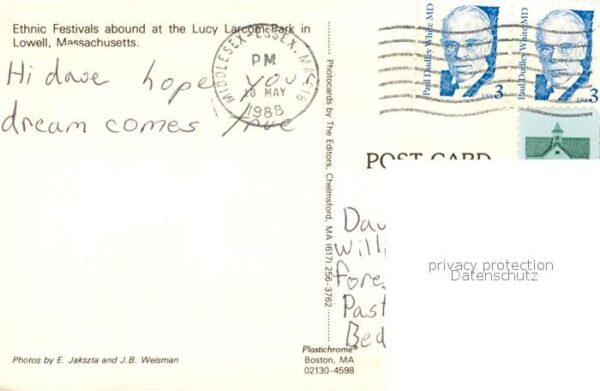 Ethnic Festivals abound at the Lucy Larcom Park in
Lowell, Massachusetts.
Hi dave hope you
dream comes true
MIDDLESEX-ESSEX, MA 018
PM
16 MAY
1988
Paul Dudley White MD
USA 3
Paul Dudley White MD
USA 3
POST CARD
Photocards by The Editors, Chelmsford, MA (617) 256-3762
Dav
Willi
Fore
Past
Bed
privacy protection
Datenschutz
Photos by E. Jakszta and J.B. Weisman
Plastichrome®
Boston, MA
02130-4598